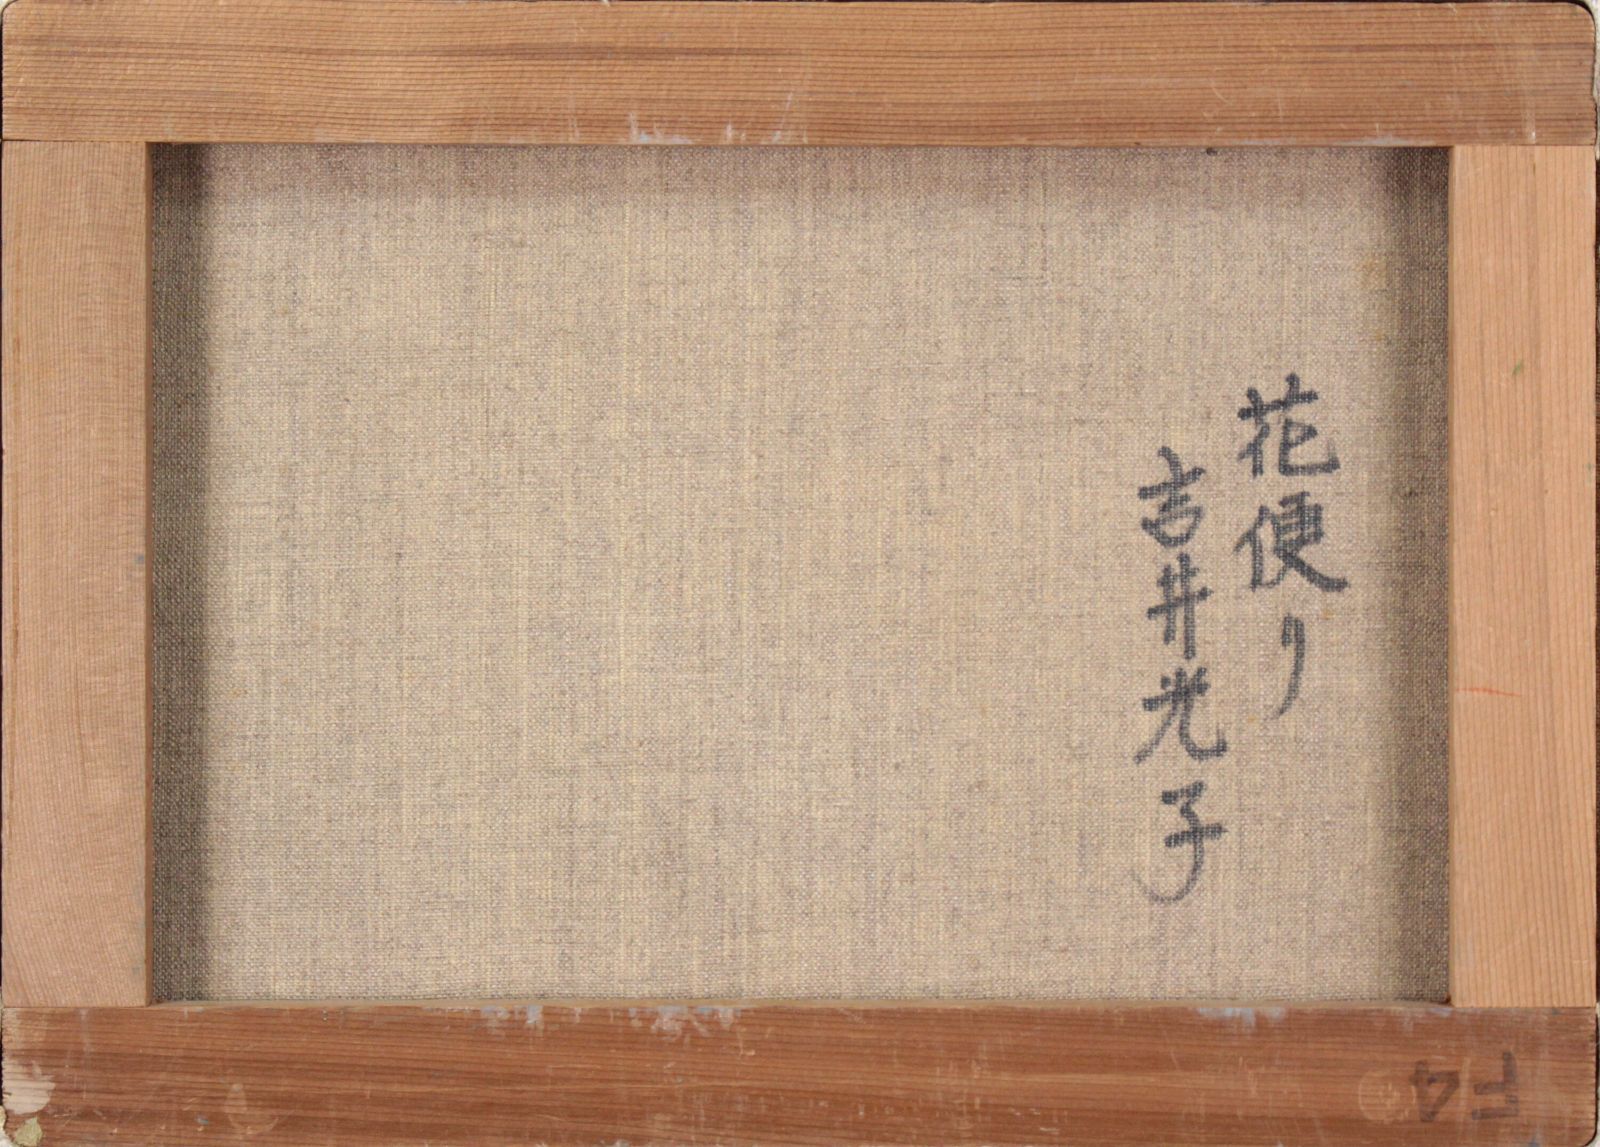 花便り
吉井光子
F4